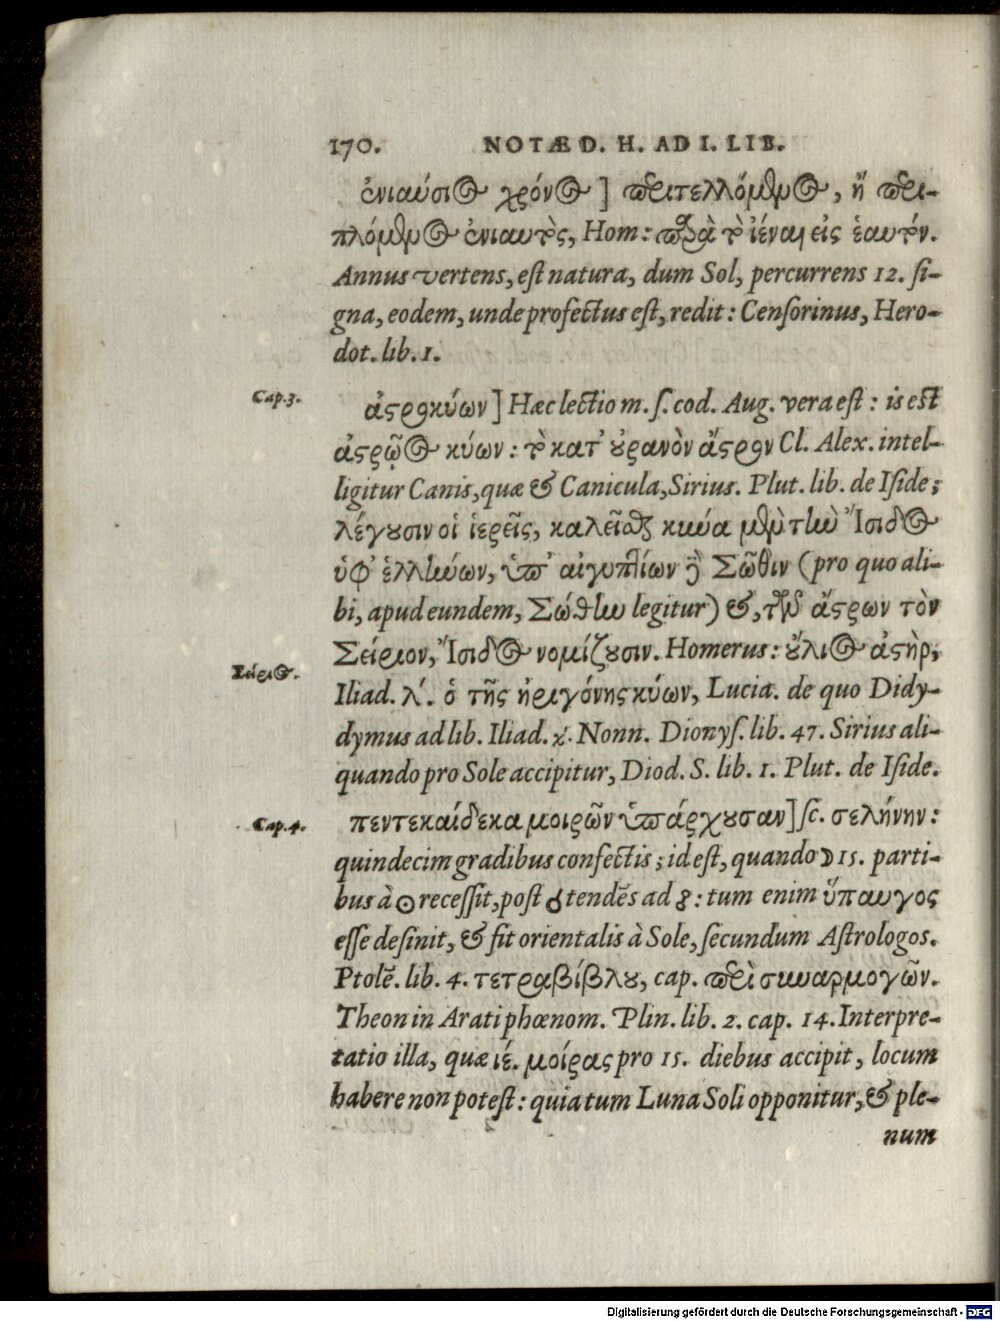 170. NOTÆ D. H. AD I. LIB.
ἐνιαύσιος χρόνος] περιτελλόμενος, ἢ περι-
πλόμενος ἐνιαυτὸς, Hom: παρὰ τὸ ἰέναι εἰς ἑαυτόν.
Annus vertens, est natura, dum Sol, percurrens 12. si-
gna, eodem, unde profectus est, redit: Censorinus, Hero-
dot. lib. 1.
Cap. 3.
ἀστροκύων] Hæc lectio m. s. cod. Aug. vera est: is est
ἀστρῷος κύων: τὸ κατ᾽ οὐρανὸν ἄστρον Cl. Alex. intel-
ligitur Canis, quæ & Canicula, Sirius. Plut. lib. de Iside;
λέγουσιν οἱ ἱερεῖς, καλεῖσθαι κύνα μὲν τὴν Ἴσιδος
ὑφ᾽ ἑλλήνων, ὑπ᾽ αἰγυπτίων δὲ Σῶθιν (pro quo ali-
bi, apud eundem, Σώθην legitur) &, τῶν ἄστρων τὸν
Σείριον, Ἴσιδος νομίζουσιν. Homerus: οὔλιος ἀστὴρ,
Σείριος.
Iliad. λ΄. ὁ τῆς ἠριγόνης κύων, Lucia. de quo Didy-
dymus ad lib. Iliad. χ. Nonn. Dionys. lib. 47. Sirius ali-
quando pro Sole accipitur, Diod. S. lib. 1. Plut. de Iside.
Cap. 4.
πεντεκαίδεκα μοιρῶν ὑπάρχουσαν] sc. σελήνην:
quindecim gradibus confectis; id est, quando ☽ 15. parti-
bus à ☉ recessit, post ☌ tendẽs ad ☍: tum enim ὕπαυγος
esse desinit, & fit orientalis à Sole, secundum Astrologos.
Ptolẽ. lib. 4. τετραβίβλου, cap. περὶ συναρμογῶν.
Theon in Arati phœnom. Plin. lib. 2. cap. 14. Interpre-
tatio illa, quæ ιέ. μοίρας pro 15. diebus accipit, locum
habere non potest: quia tum Luna Soli opponitur, & ple-
num
Digitalisierung gefördert durch die Deutsche Forschungsgemeinschaft - DFG